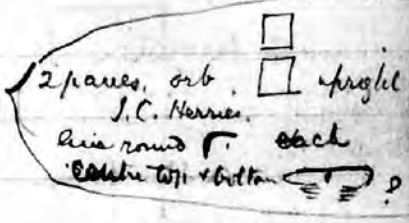 2 panes, orb, upright
J.C. Herries.
line round each
centre top & bottom ?